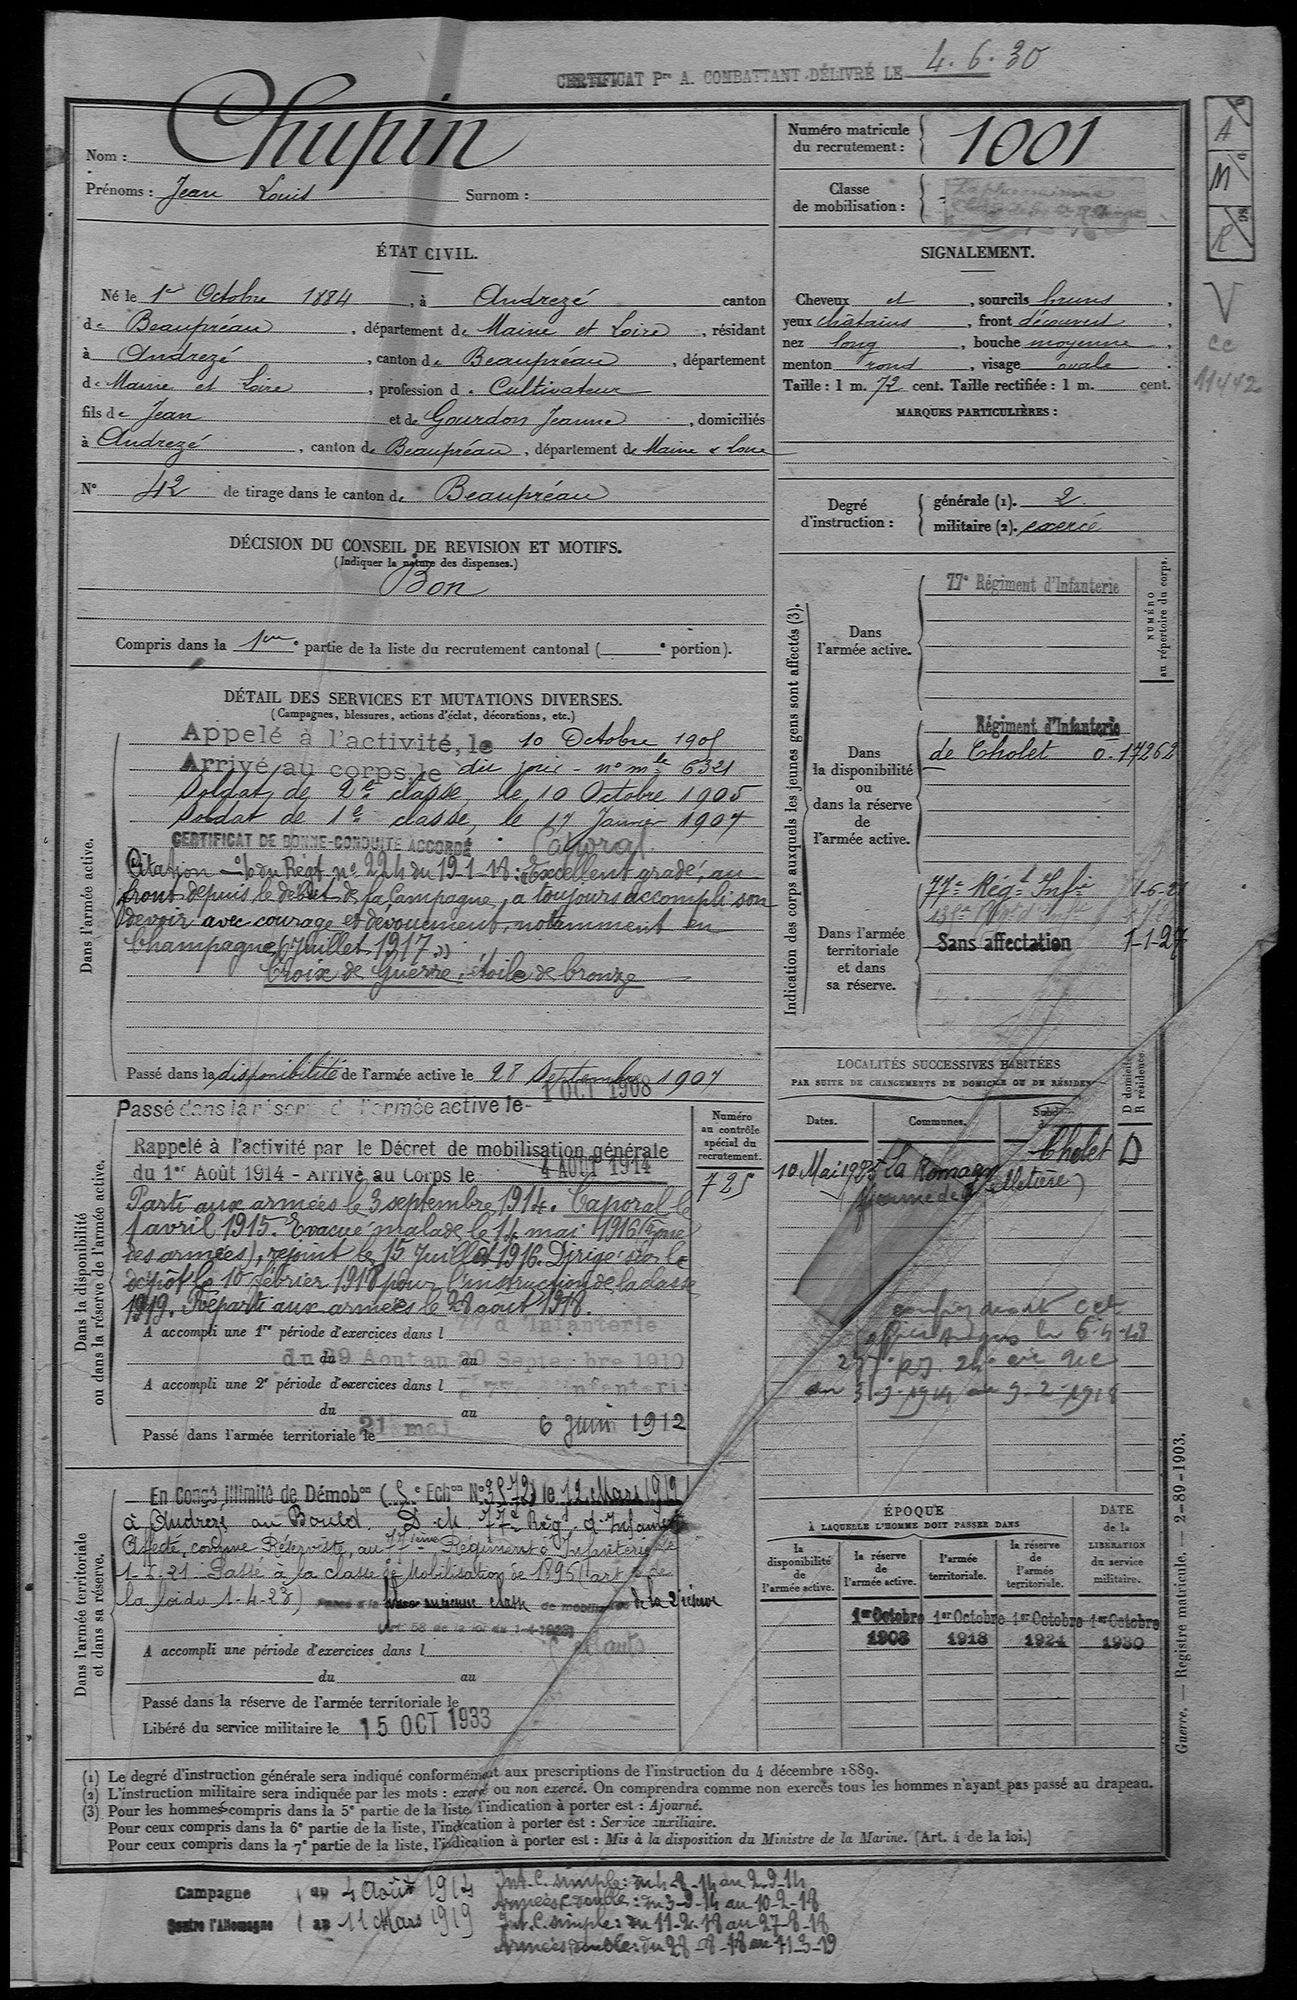 CERTIFICAT Pre A. COMBATTANT DÉLIVRÉ LE 4.6.30
Nom : Chupin
Prénoms : Jean Louis Surnom :
Numéro matricule du recrutement : 1001
Classe de mobilisation :
ÉTAT CIVIL.
Né le 1er Octobre 1884, à Andrezé canton
de Beaupréau, département de Maine et Loire, résidant
à Andrezé, canton de Beaupréau, département
de Maine et Loire, profession de Cultivateur
fils de Jean et de Gourdon Jeanne, domiciliés
à Andrezé, canton de Beaupréau, département de Maine & Loire
N° 42 de tirage dans le canton de Beaupréau
SIGNALEMENT.
Cheveux et, sourcils bruns,
yeux châtains, front découvert,
nez long, bouche moyenne,
menton rond, visage ovale.
Taille : 1 m. 72 cent. Taille rectifiée : 1 m. cent.
MARQUES PARTICULIÈRES :
Degré d'instruction :
générale (1). 2
militaire (2). exercé
A
M
R
V
cc
11442
DÉCISION DU CONSEIL DE REVISION ET MOTIFS.
(Indiquer la nature des dispenses.)
Bon
Compris dans la 1ère partie de la liste du recrutement cantonal ( e portion).
DÉTAIL DES SERVICES ET MUTATIONS DIVERSES.
(Campagnes, blessures, actions d'éclat, décorations, etc.)
Dans l'armée active.
Appelé à l'activité, le 10 Octobre 1905
Arrivé au corps le dit jour - n° mle 6321
Soldat de 2e classe, le 10 Octobre 1905
Soldat de 1e classe, le 17 Janvier 1907
CERTIFICAT DE BONNE-CONDUITE ACCORDÉ Caporal
Citation - o/ du Régt n° 224 du 19-1-18 : Excellent gradé, au
front depuis le début de la Campagne, a toujours accompli son
devoir avec courage et dévouement, notamment en
Champagne (Juillet 1917")
Croix de Guerre : étoile de bronze
Passé dans la disponibilité de l'armée active le 28 Septembre 1907
Indication des corps auxquels les jeunes gens sont affectés (3).
NUMÉRO au répertoire du corps.
Dans l'armée active.
77e Régiment d'Infanterie
Dans la disponibilité ou dans la réserve de l'armée active.
Régiment d'Infanterie
de Cholet 0.17262
Dans l'armée territoriale et dans sa réserve.
77e Régt Infie 1-6-21
Sans affectation 1-1-27
Dans la disponibilité ou dans la réserve de l'armée active.
Passé dans la réserve de l'armée active le 1 OCT 1908
Rappelé à l'activité par le Décret de mobilisation générale
du 1er Août 1914 - Arrivé au Corps le 4 AOUT 1914
Parti aux armées le 3 septembre 1914. Caporal le
1 avril 1915. Evacué malade le 14 mai 1916
des armées), rejoint le 15 Juillet 1916. Dirigé sur le
dépôt le 10 février 1918 pour l'instruction de la classe
1919. Reparti aux armées le 28 août 1918.
A accompli une 1re période d'exercices dans l 77 d'Infanterie
du 29 Aout au 20 Septembre 1910
A accompli une 2e période d'exercices dans l 77 Infanterie
du 21 mai au 6 juin 1912
Passé dans l'armée territoriale le
Numéro au contrôle spécial du recrutement.
725
LOCALITÉS SUCCESSIVES HABITÉES
PAR SUITE DE CHANGEMENTS DE DOMICILE OU DE RÉSIDENCE
Dates. Communes. Subdon D domicile R résidence.
10 Mai 1925 La Romagne Cholet D
(ferme de Pelletière)
le 6-4-48
Dans l'armée territoriale et dans sa réserve.
En Congé illimité de Démobon (5e Echon N° 3572) le 12 Mars 1919
à Andrezé au Bourd. D. M. 77e Rég. d'Infanterie
Affecté, comme Réserviste, au 77ième Régiment d'Infanterie le
1-6-21 Passé à la classe de Mobilisation de 1895 (art de
la loi du 1-4-23) de la 2e réserve
(Art. 58 de la loi du 1-4-1923)
A accompli une période d'exercices dans l
du au
Passé dans la réserve de l'armée territoriale le
Libéré du service militaire le 15 OCT 1933
ÉPOQUE
À LAQUELLE L'HOMME DOIT PASSER DANS
DATE de la LIBÉRATION du service militaire.
la disponibilité de l'armée active. la réserve de l'armée active. l'armée territoriale. la réserve de l'armée territoriale.
1er Octobre 1908 1er Octobre 1918 1er Octobre 1924 1er Octobre 1930
Guerre. — Registre matricule. — 2-89-1903.
(1) Le degré d'instruction générale sera indiqué conformément aux prescriptions de l'instruction du 4 décembre 1889.
(2) L'instruction militaire sera indiquée par les mots : exercé ou non exercé. On comprendra comme non exercés tous les hommes n'ayant pas passé au drapeau.
(3) Pour les hommes compris dans la 5e partie de la liste, l'indication à porter est : Ajourné.
Pour ceux compris dans la 6e partie de la liste, l'indication à porter est : Service auxiliaire.
Pour ceux compris dans la 7e partie de la liste, l'indication à porter est : Mis à la disposition du Ministre de la Marine. (Art. 4 de la loi.)
Campagne contre l'Allemagne
du 4 Août 1914
au 11 Mars 1919
Int. C. simple : du 4-8-14 au 2-9-14
Armées C. double : du 3-9-14 au 10-2-18
Int. C. simple : du 11-2-18 au 27-8-18
Armées double : du 28-8-18 au 11-3-19